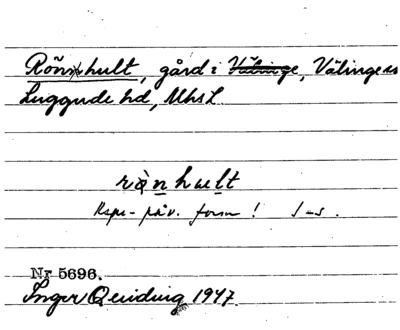 Rönnhult, gård i Välinge, Välinge sn
Luggude hd, Mhs L.
rö̀nhult
form!
Nr 5696.
Inger Quiding 1947.